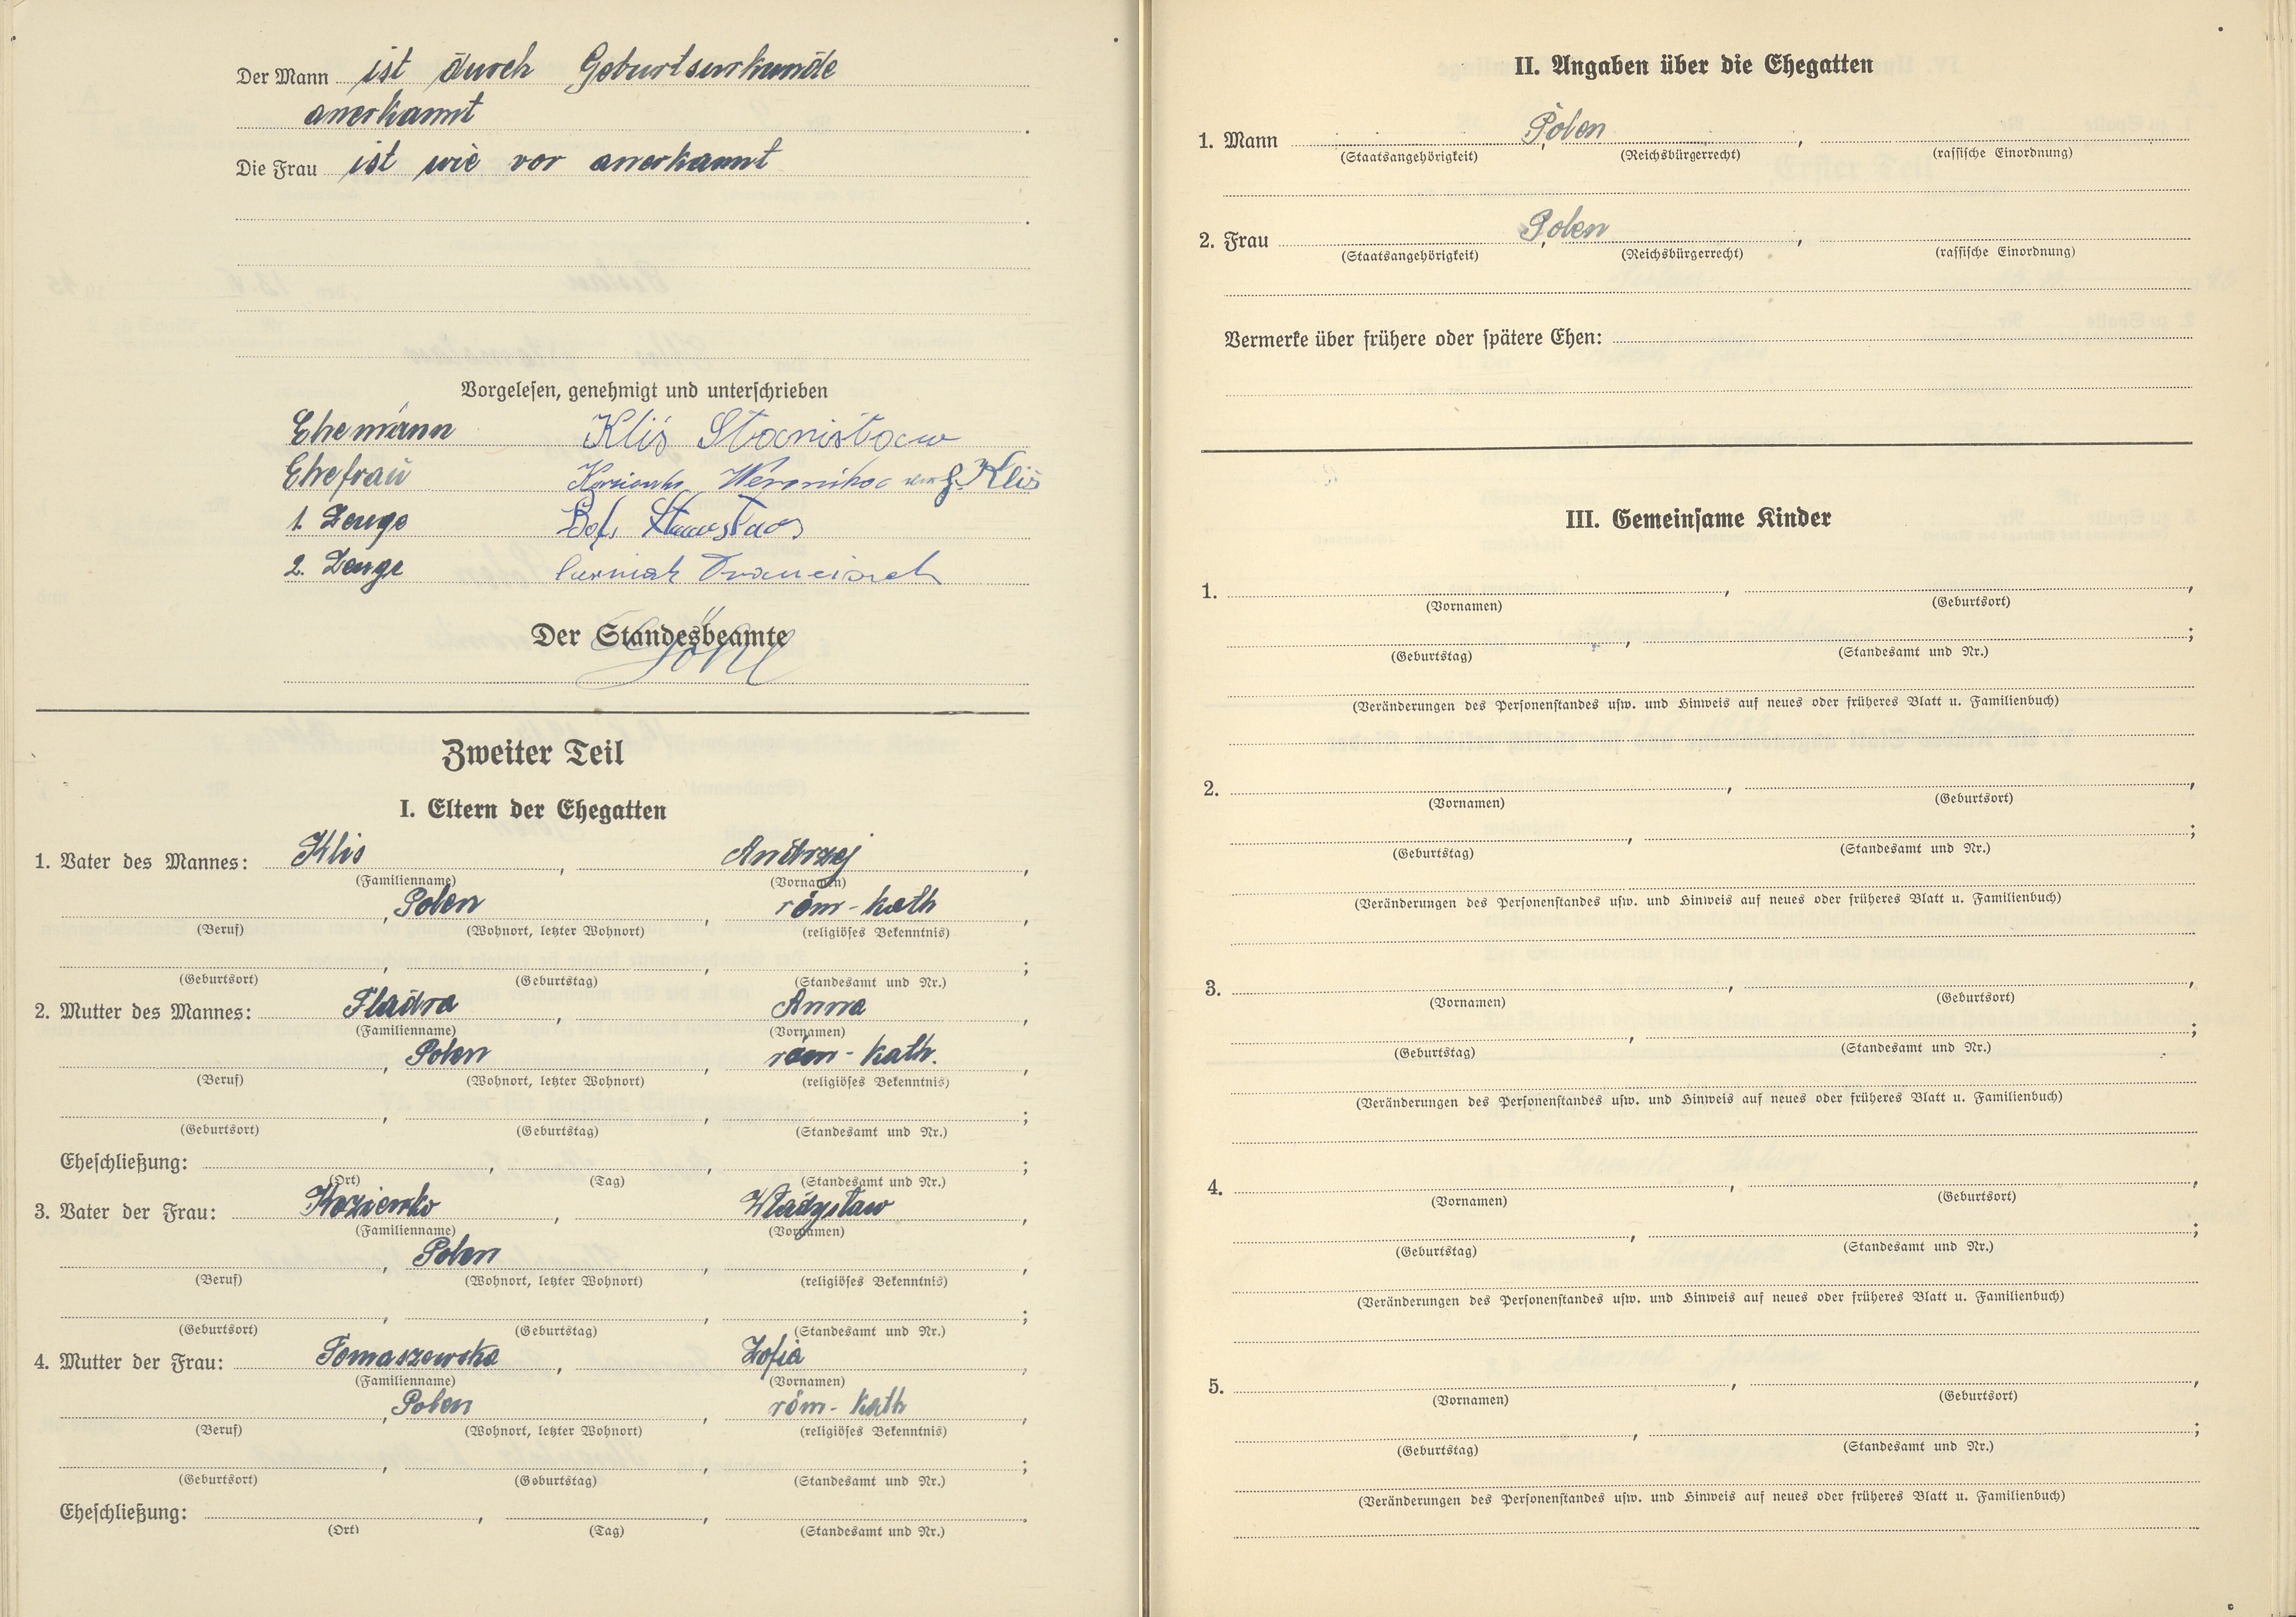 Der Mann ist durch Geburtsurkunde
anerkannt
Die Frau ist wie vor anerkannt
Vorgelesen, genehmigt und unterschrieben
Ehemann Kliś Stanisław
Ehefrau Weronika Kliś
1. Zeuge
2. Zeuge
Der Standesbeamte
Zweiter Teil
I. Eltern der Ehegatten
1. Vater des Mannes: Klis , Andrzej ,
(Familienname) (Vornamen)
, Polen , röm-kath ,
(Beruf) (Wohnort, letzter Wohnort) (religiöses Bekenntnis)
, , ;
(Geburtsort) (Geburtstag) (Standesamt und Nr.)
2. Mutter des Mannes: Fladra , Anna ,
(Familienname) (Vornamen)
, Polen , röm-kath. ,
(Beruf) (Wohnort, letzter Wohnort) (religiöses Bekenntnis)
, , ;
(Geburtsort) (Geburtstag) (Standesamt und Nr.)
Eheschließung: , , ;
(Ort) (Tag) (Standesamt und Nr.)
3. Vater der Frau: Kozienko , Władysław ,
(Familienname) (Vornamen)
, Polen , ,
(Beruf) (Wohnort, letzter Wohnort) (religiöses Bekenntnis)
, , ;
(Geburtsort) (Geburtstag) (Standesamt und Nr.)
4. Mutter der Frau: Tomaszewska , Zofia ,
(Familienname) (Vornamen)
, Polen , röm-kath ,
(Beruf) (Wohnort, letzter Wohnort) (religiöses Bekenntnis)
, , ;
(Geburtsort) (Geburtstag) (Standesamt und Nr.)
Eheschließung: , , .
(Ort) (Tag) (Standesamt und Nr.)
II. Angaben über die Ehegatten
1. Mann Polen ,
(Staatsangehörigkeit) (Reichsbürgerrecht) (rassische Einordnung)
2. Frau Polen ,
(Staatsangehörigkeit) (Reichsbürgerrecht) (rassische Einordnung)
Vermerke über frühere oder spätere Ehen:
III. Gemeinsame Kinder
1. , ,
(Vornamen) (Geburtsort)
, ;
(Geburtstag) (Standesamt und Nr.)
(Veränderungen des Personenstandes usw. und Hinweis auf neues oder früheres Blatt u. Familienbuch)
2. , ,
(Vornamen) (Geburtsort)
, ;
(Geburtstag) (Standesamt und Nr.)
(Veränderungen des Personenstandes usw. und Hinweis auf neues oder früheres Blatt u. Familienbuch)
3. , ,
(Vornamen) (Geburtsort)
, ;
(Geburtstag) (Standesamt und Nr.)
(Veränderungen des Personenstandes usw. und Hinweis auf neues oder früheres Blatt u. Familienbuch)
4. , ,
(Vornamen) (Geburtsort)
, ;
(Geburtstag) (Standesamt und Nr.)
(Veränderungen des Personenstandes usw. und Hinweis auf neues oder früheres Blatt u. Familienbuch)
5. , ,
(Vornamen) (Geburtsort)
, ;
(Geburtstag) (Standesamt und Nr.)
(Veränderungen des Personenstandes usw. und Hinweis auf neues oder früheres Blatt u. Familienbuch)